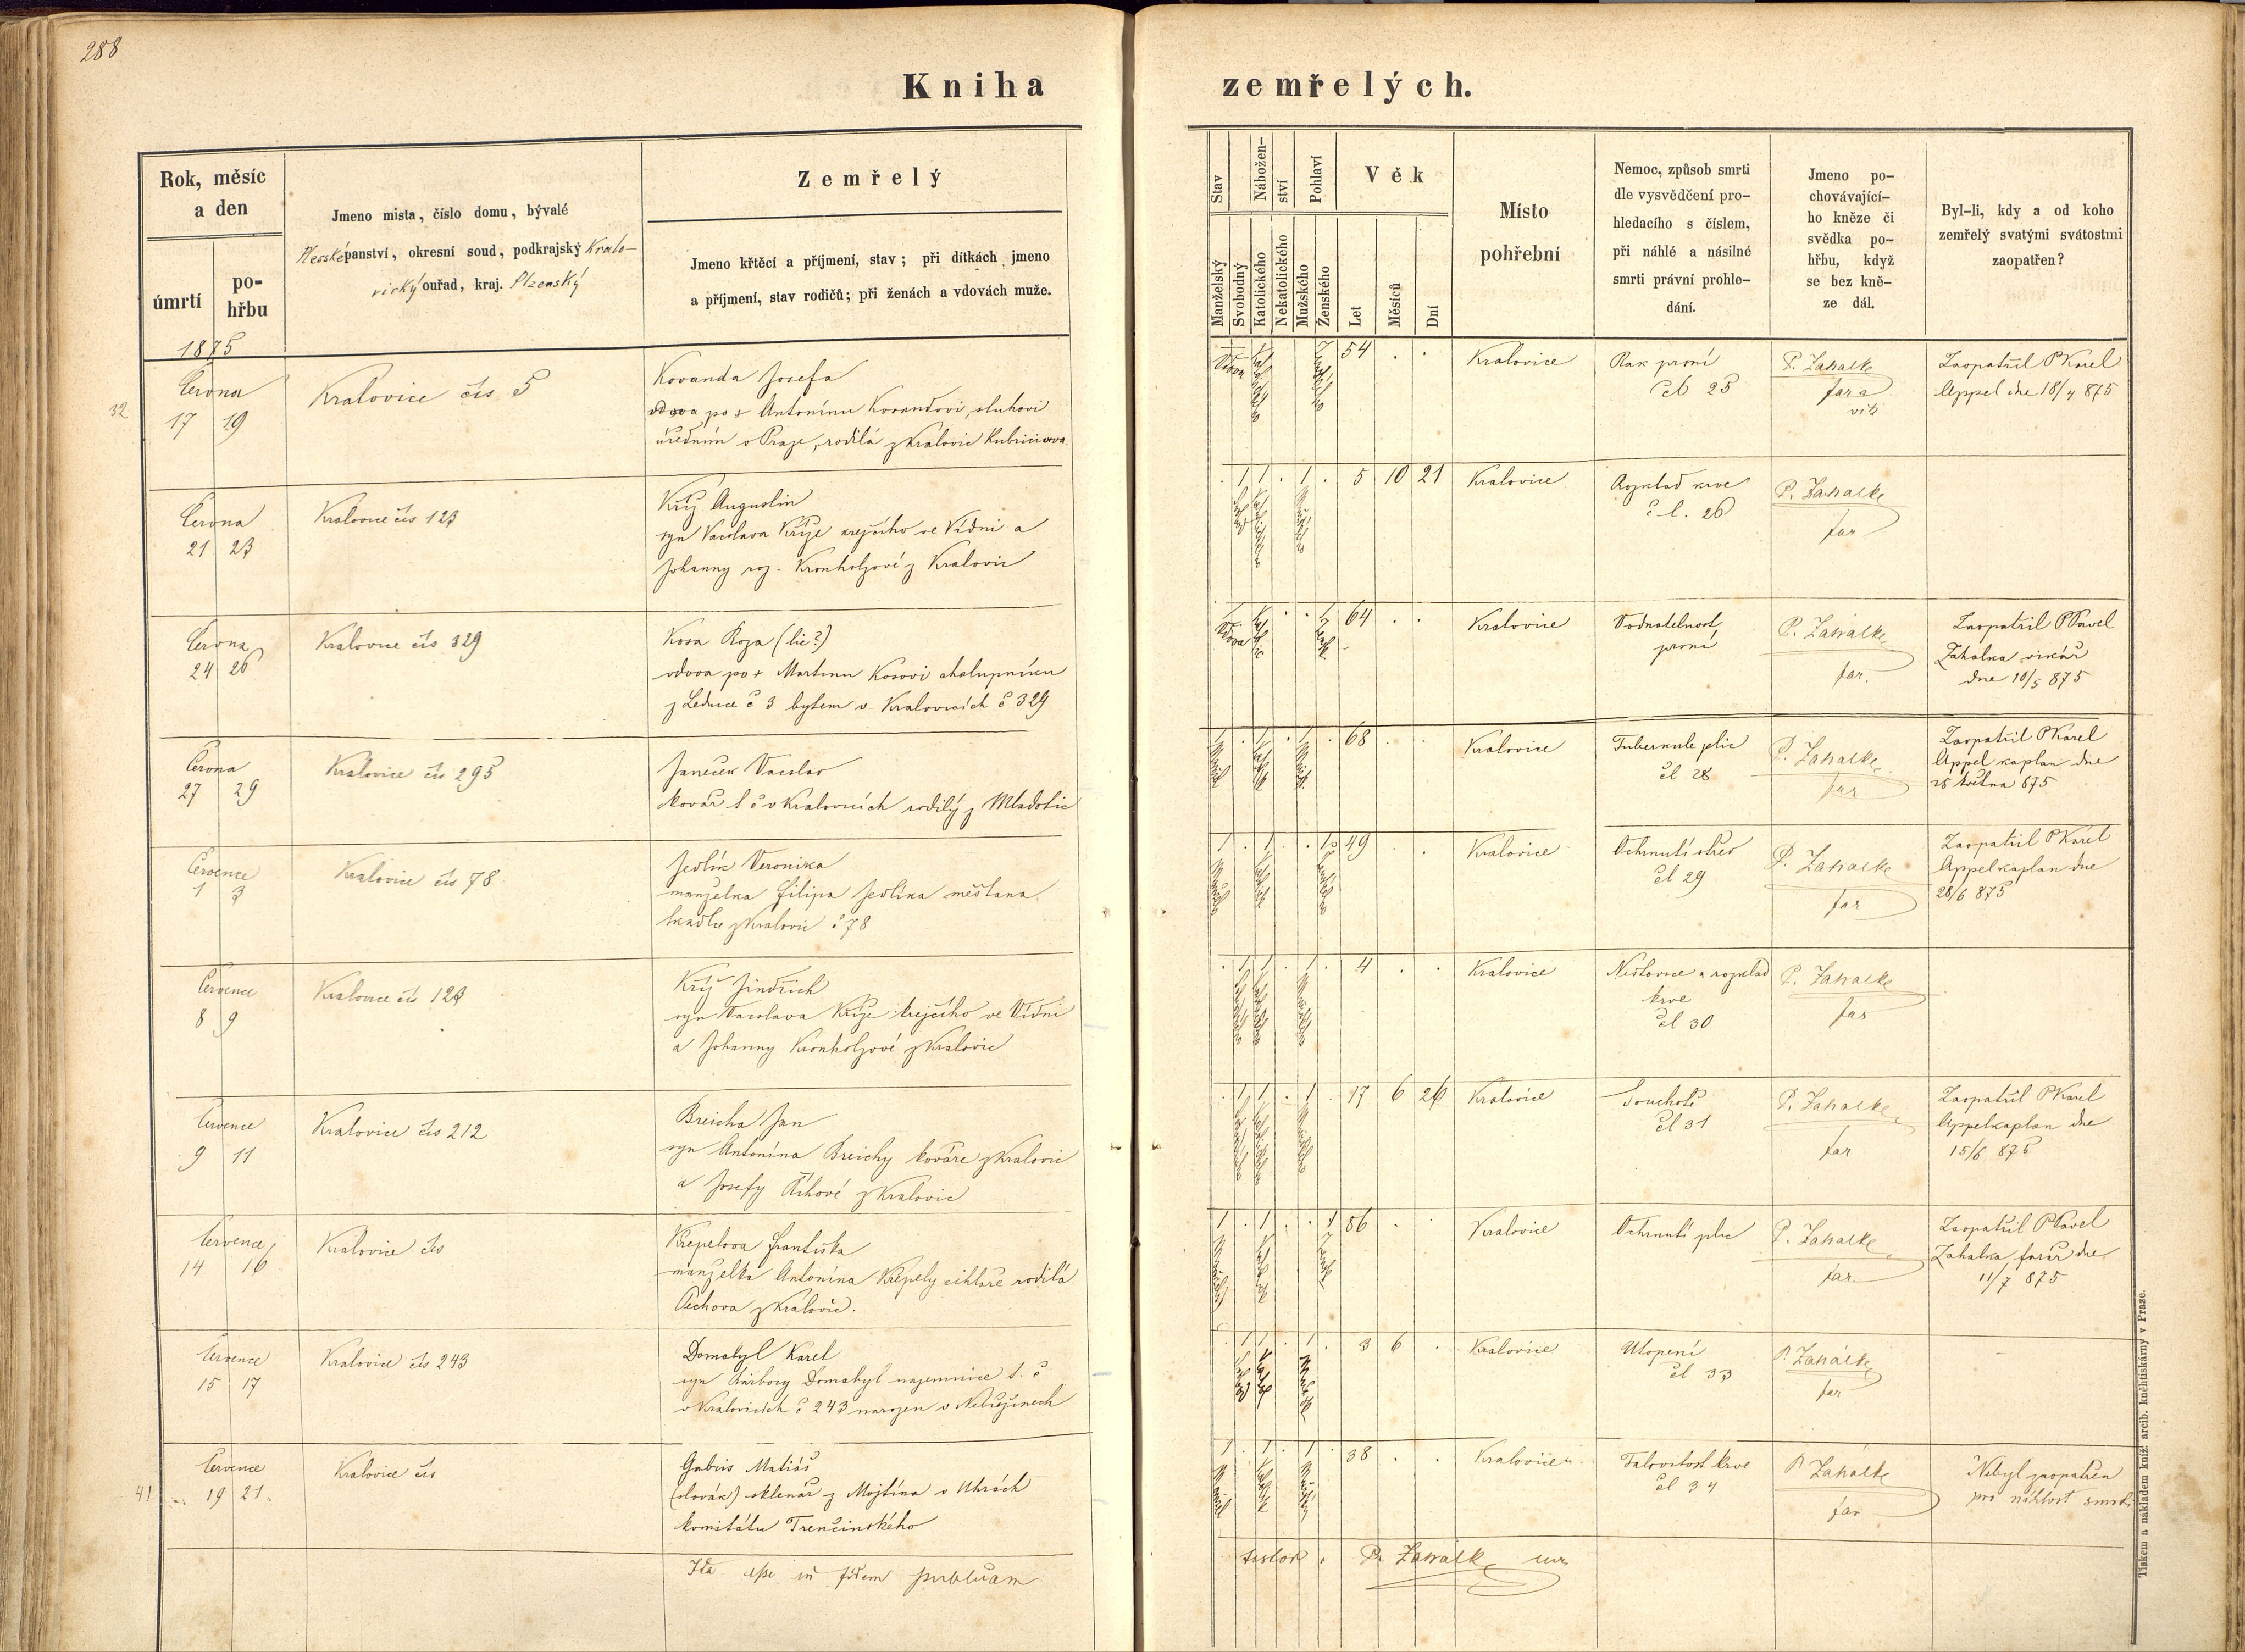 288
Kniha zemřelých.
Rok, měsíc
a den
úmrtí
po-
hřbu
Jmeno mista, číslo domu, bývalé
panství, okresní soud, podkrajský Kralo-
vický ouřad, kraj. Plzenský
Zemřelý
Jmeno křtěcí a příjmení, stav; při dítkách jmeno
a příjmení, stav rodičů; při ženách a vdovách muže.
Stav
Nábožen-
ství
Pohlaví
Věk
Manželský
Svobodný
Katolického
Nekatolického
Mužského
Ženského
Let
Měsíců
Dní
Místo
pohřební
Nemoc, způsob smrti
dle vysvědčení pro-
hledacího s číslem,
při náhlé a násilné
smrti právní prohle-
dání.
Jmeno po-
chovávající-
ho kněze či
svědka po-
hřbu, když
se bez kně-
ze dál.
Byl-li, kdy a od koho
zemřelý svatými svátostmi
zaopatřen?
1875
32
Června
17 19
Kralovice čís 5
Kovanda Josefa
vdova po + Antonínu Kovandovi, sluhovi
úředním v Praze, rodilá z Kralovic
Vdova
54 . .
Kralovice
Rak prsní
čl 25
P. Zahalka
farа
vik
Zaopatřil P Karel
Appel dne 18/4 875
Června
21 23
Kralovice čís 123
Kříž Augustin
syn Vacslava Kříže krejčího ve Vídni a
Johanny roz. Kronholzové z Kralovic
. 1 1 . 1 . 5 10 21
Kralovice
Rozklad krve
č l. 26
P. Zahalka
far
Června
24 26
Kralovice čís 329
Kosa Roza (lie?)
vdova po + Martinu Kosovi chalupníku
z Lednice č 3 bytem v Kralovicích č 329
Vdova
64 . .
Kralovice
Vodnatelnost
prsní
P. Zahalka
far.
Zaopatřil P Pavel
Zahalka vikář
dne 10/5 875
Června
27 29
Kralovice čís 295
Janeček Vacslav
kovář t. č v Kralovicích rodilý z Mladotic
1 . 1 . 1 . 68 . .
Kralovice
Tuberkule plic
čl 28
P. Zahalka
far
Zaopatřil P Karel
Appel kaplan dne
25 května 875
Července
1 3
Kralovice čís 78
Jedlík Veronika
manželka Filipa Jedlíka měšťana
tkadlce z Kralovic č 78
1 . 1 . . 1 49 . .
Kralovice
Ochrnutí střev
čl 29
P. Zahalka
far
Zaopatřil P Karel
Appel kaplan dne
28/6 875
Července
8 9
Kralovice čís 123
Kříž Jindřich
syn Vacslava Kříže krejčího ve Vídni
a Johanny Kronholzové z Kralovic
. 1 1 . 1 . 4 . .
Kralovice
Neštovice a rozklad
krve
čl 30
P. Zahalka
far
Července
9 11
Kralovice čís 212
Breicha Jan
syn Antonína Breichy kováře z Kralovic
a Josefy Říhové z Kralovic
. 1 1 . 1 . 17 6 26
Kralovice
Souchotě
čl 31
P. Zahalka
far
Zaopatřil P Karel
Appel kaplan dne
15/6 875
Července
14 16
Kralovice čís
Křepelova Františka
manželka Antonína Křepely cihláře rodilá
z Kralovic.
1 . 1 . . 1 . .
Kralovice
Ochrnutí plic
P. Zahalka
far.
Zaopatřil P Pavel
Zahalka, farář dne
11/7 875
Července
15 17
Kralovice čís 243
Domabyl Karel
syn Barbory Domabyl najemnice t. č
v Kralovicích č 243 narozen v Nebřezinech
. 1 1 . 1 . 3 6 .
Kralovice
Utopení
čl 33
P. Zahálka
far
41
Července
19 21.
Kralovice čís
Gabris Matiáš
(slovák) sklenář z Mojtína v Uhrách
komitátu Trenčinského
1 . 1 . 1 . 38 . .
Kralovice
čl 34
P Zahálka
far
Nebyl zaopatřen
pro náhlost smrti
Ita esse in fidem publicam
testor. P. Zahalka
Tiskem a nákladem kníž. arcib. kněhtiskárny v Praze.